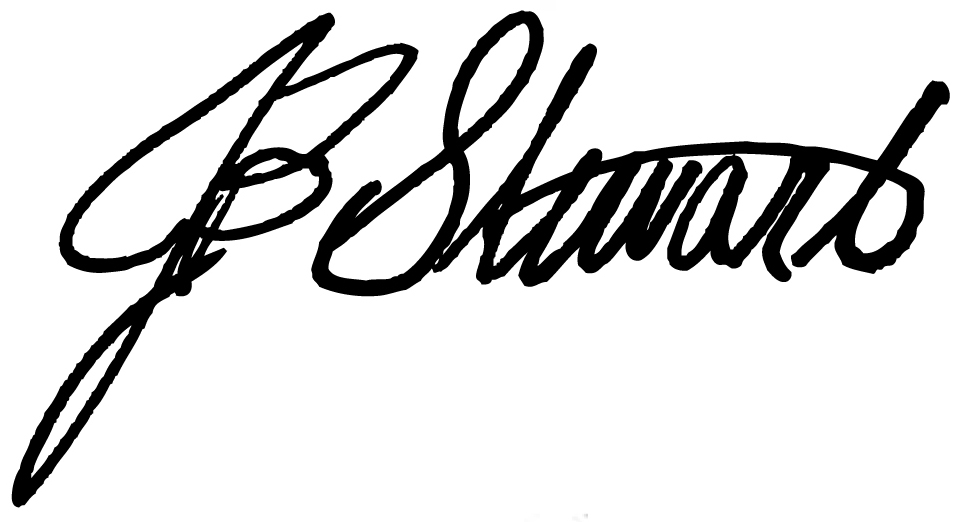 JB Stewart